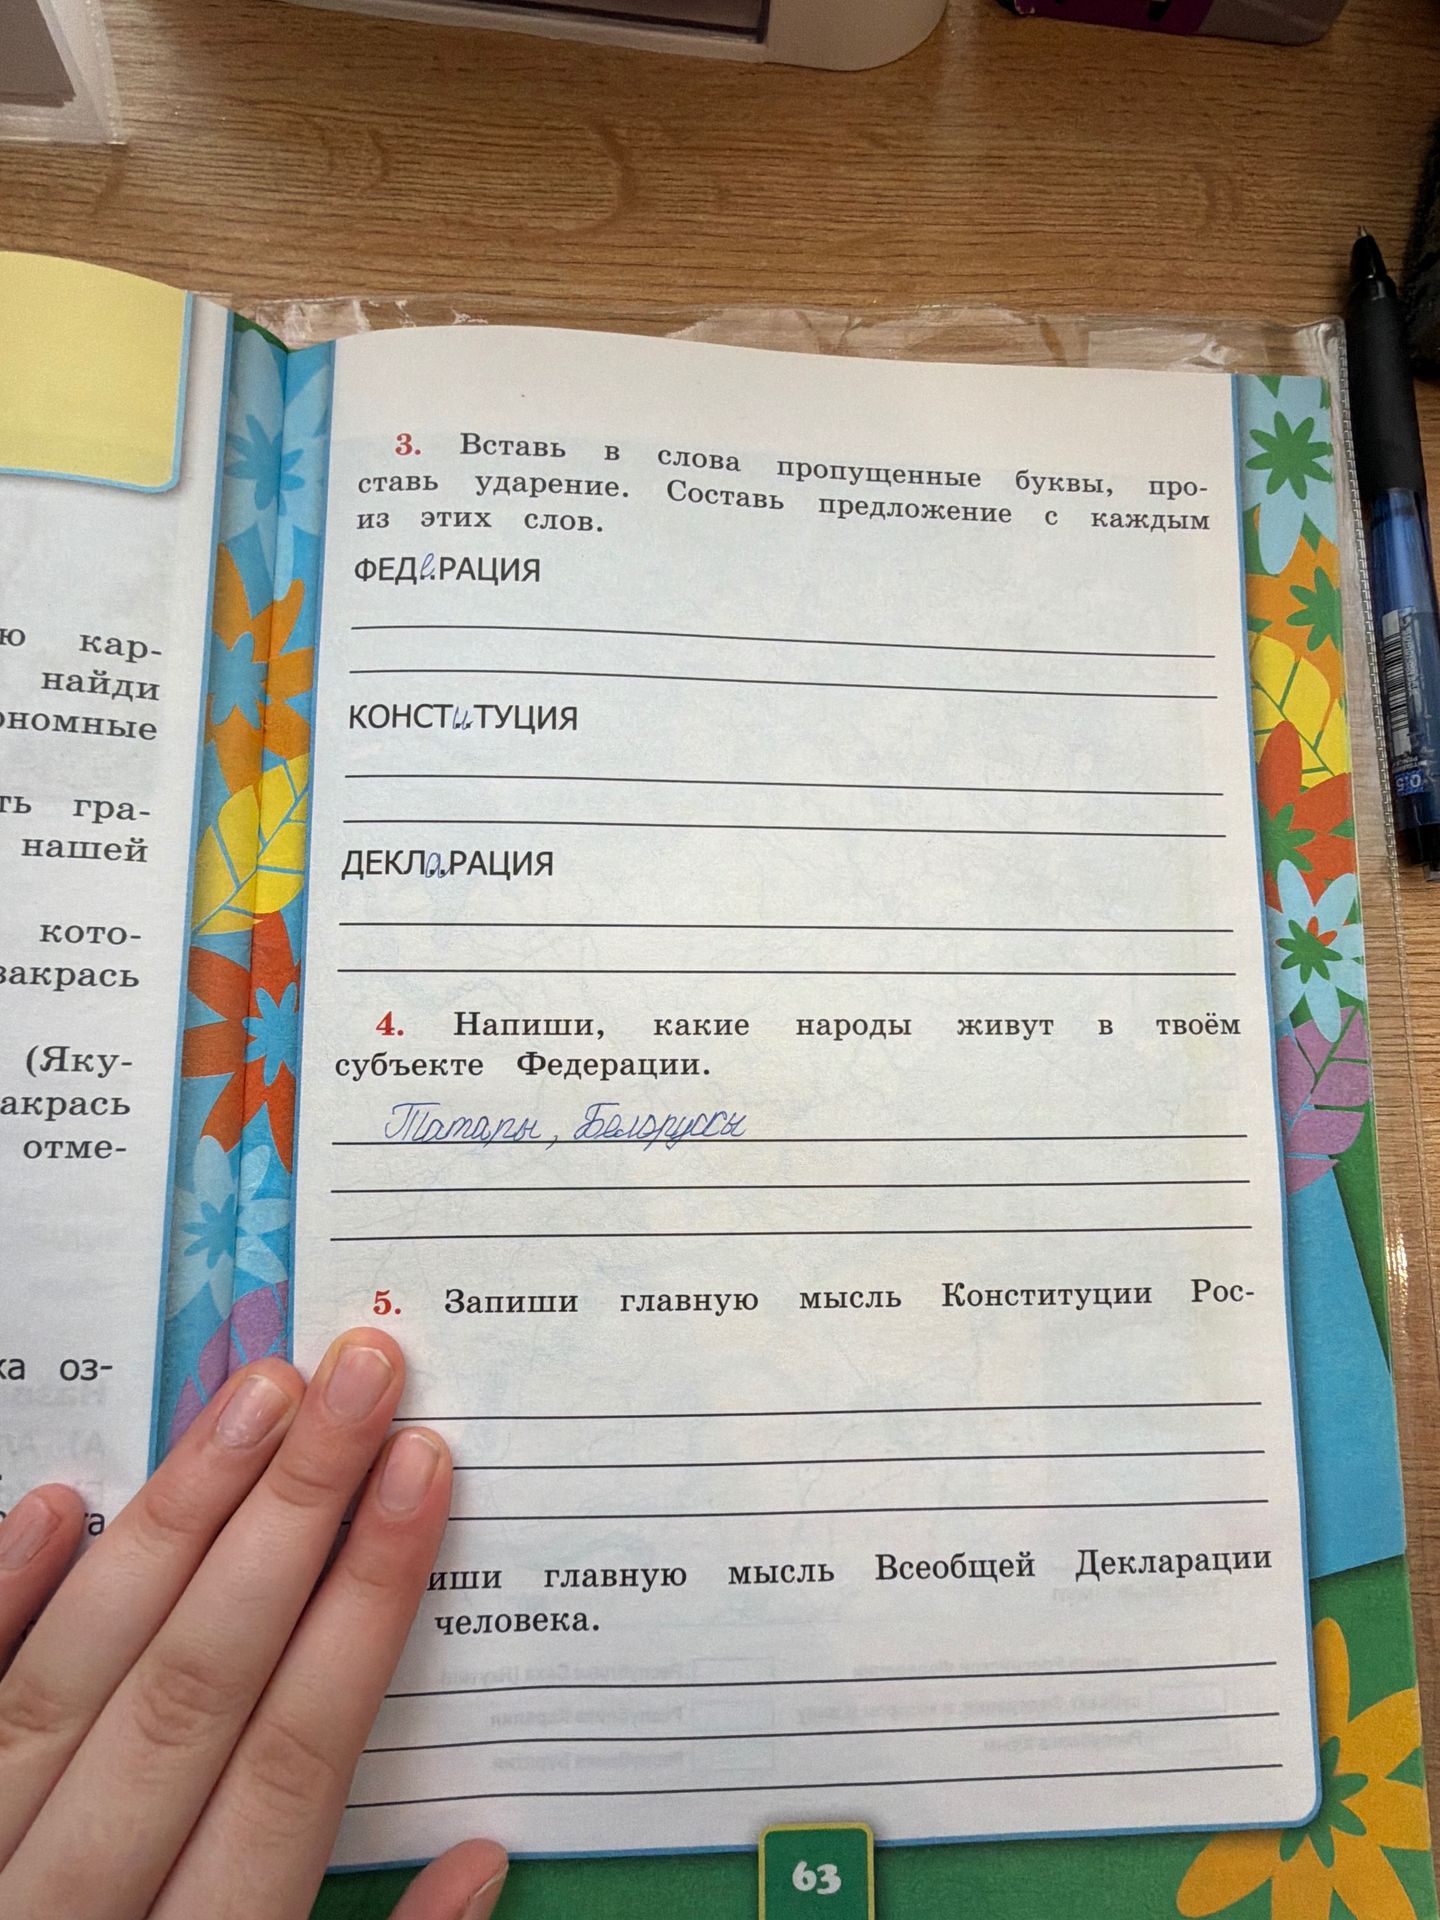 ю кар-
найди
ономные
ть гра-
нашей
кото-
закрась
(Яку-
акрась
отме-
ка оз-
та
3. Вставь в слова пропущенные буквы, про-
ставь ударение. Составь предложение с каждым
из этих слов.
ФЕДеРАЦИЯ
КОНСТиТУЦИЯ
ДЕКЛаРАЦИЯ
4. Напиши, какие народы живут в твоём
субъекте Федерации.
Татары, Белоруссы
5. Запиши главную мысль Конституции Рос-
иши главную мысль Всеобщей Декларации
человека.
63